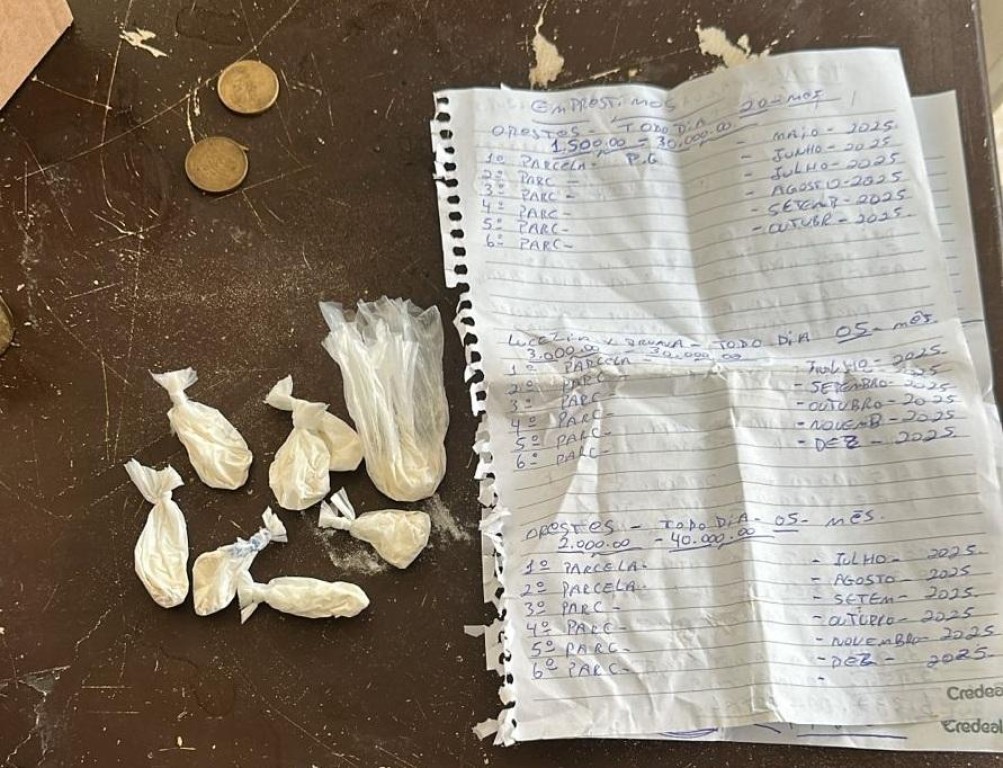 EMPRESTIMOS 20-MES
OPOSTOS - TODO DIA
1.500.00 = 30.000.00 - MAIO - 2025.
1º PARCELA - P.G - JUNHO - 2025
2º PARC - - JULHO - 2025
3º PARC - - AGOSTO - 2025
4º PARC - - SETEMB - 2025
5º PARC - - OUTUBR - 2025.
6º PARC -
- TODO DIA 05 - MÊS.
3.000.00 = 30.000.00
1º PARCELA - JULHO - 2025.
2º PARC - - SETEMBRO - 2025
3º PARC - - OUTUBRO - 2025
4º PARC - - NOVEMB - 2025
5º PARC - - DEZ - 2025.
6º PARC -
OPOSTOS - TODO DIA - 05 - MÊS.
2.000.00 - 40.000.00
1º PARCELA - - JULHO - 2025
2º PARCELA - - AGOSTO - 2025
3º PARC - - SETEM - 2025.
4º PARC - - OUTUBRO - 2025
5º PARC - - NOVEMBRO - 2025
6º PARC - - DEZ - 2025
Credeal
Credeal